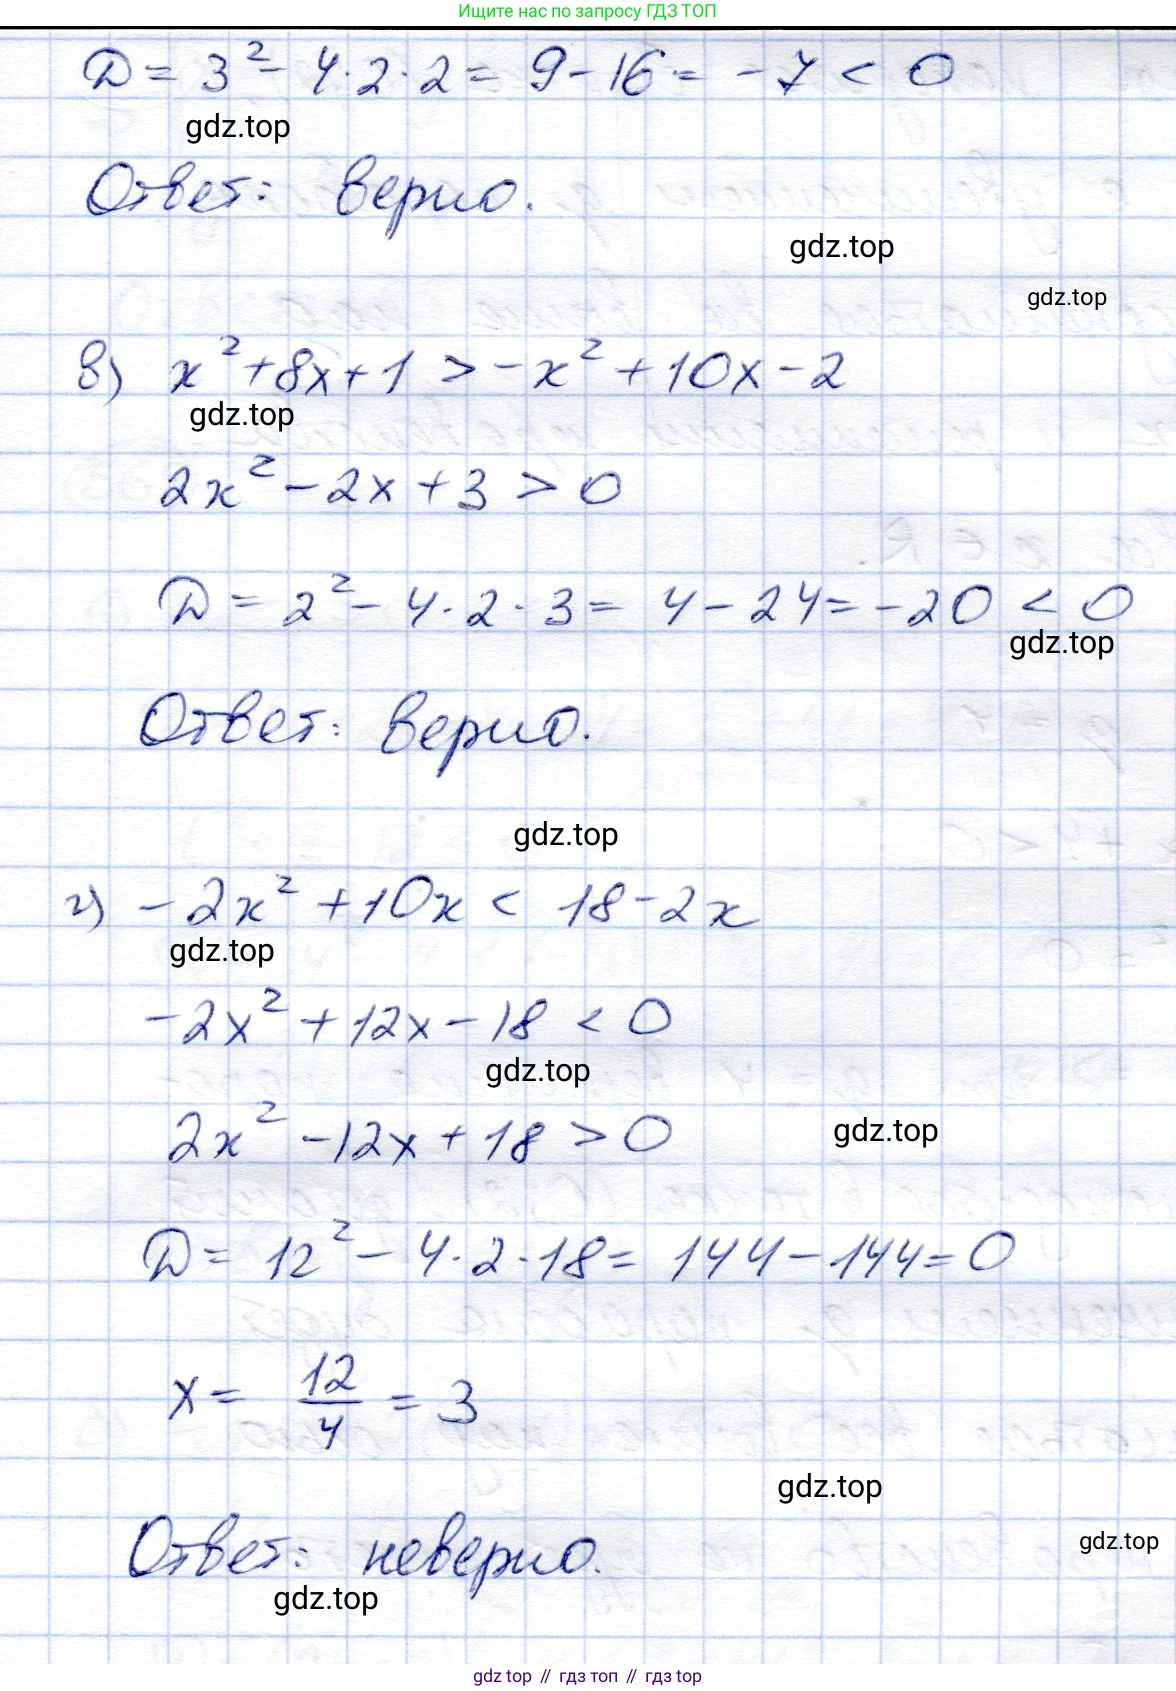 Ищите нас по запросу ГДЗ ТОП
D = 3² - 4·2·2 = 9 - 16 = -7 < 0
gdz.top
Ответ: верно.
gdz.top
gdz.top
в) x² + 8x + 1 > -x² + 10x - 2
gdz.top
2x² - 2x + 3 > 0
D = 2² - 4·2·3 = 4 - 24 = -20 < 0
gdz.top
Ответ: верно.
gdz.top
г) -2x² + 10x < 18 - 2x
gdz.top
-2x² + 12x - 18 < 0
gdz.top
2x² - 12x + 18 > 0
gdz.top
D = 12² - 4·2·18 = 144 - 144 = 0
x = 12/4 = 3
gdz.top
gdz.top
Ответ: неверно.
gdz.top
gdz top // гдз топ // гдз top